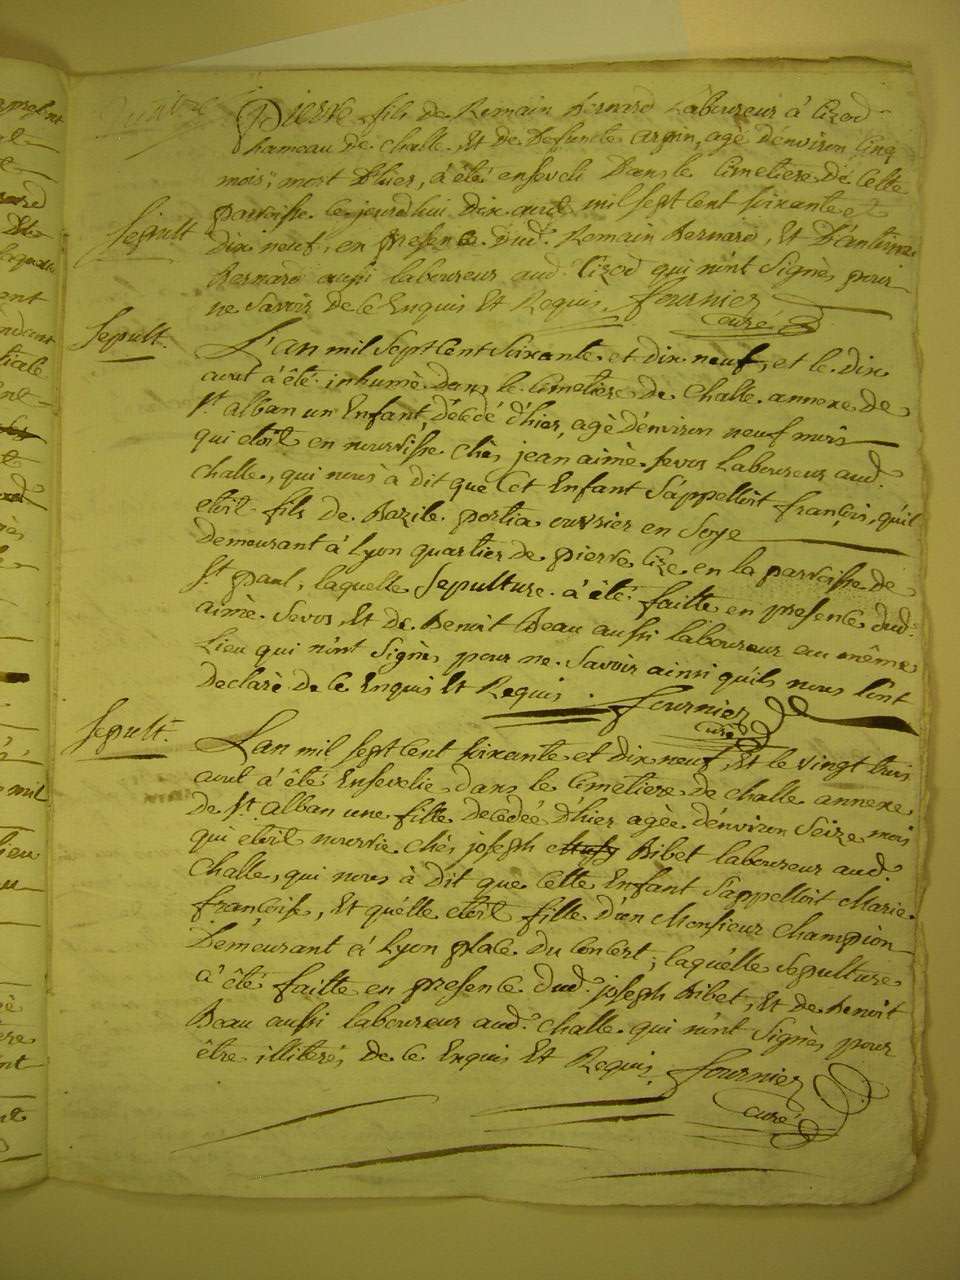 Pierre fils de Romain Bernard Laboureur à Cizod
hameau de challe, Et de Defunte argun, agé d'environ Cinq
mois; mort D'hier, à été enseveli Dans le Cimetiere de Cette
Sepult
parroisse. le jourd'hui Dix aout mil sept Cent soixante et
Dix neuf, en presence. dud. Romain Bernard, Et D'antoine
Bernard aussi laboureur aud. Cizod qui n'ont Signés pour
ne Savoir de Ce Enquis Et Requis. fournier
curé
Sepult.
L'an mil Sept Cent Soixante. et dix neuf, et le. dix
aout à été. inhumé. dans le. Cimetiere de Challe. annexe de
St. alban un Enfant, décédé d'hier, agé d'environ neuf mois
qui etoit en nourrisse. chés jean aimé. Sevos Laboureur aud.
challe., qui nous à dit que Cet Enfant S'appelloit françois, qu'il
etoit fils de. Bazile. portia. ouvrier en Soye
demeurant à Lyon quartier de pierre Cize. en la parroisse de
St. paul, laquelle Sepulture. à été. faitte en presence dud.
aimé. Sevos, Et de. Benoit Beau aussi laboureur au même
Lieu qui n'ont Signés pour ne. Savoir ainsi qu'ils nous l'ont
declaré de Ce Enquis Et Requis. fournier
curé
Sepult.
L'an mil Sept Cent soixante et dix neuf, Et le vingt trois
aout à été Ensevelie. dans le Cimetiere de challe annexe
de St. alban une. fille decedée D'hier agée. d'environ Seize mois
qui etoit nourrie. chés joseph Bibet laboureur aud.
Challe., qui nous à dit que Cette Enfant S'appelloit Marie.
françoise, Et qu'elle etoit fille D'un Monsieur Champion
Demeurant à Lyon place. Du Concert; laquelle Sepulture
à été faitte en presence dud. joseph Bibet, Et de Benoit
Beau aussi laboureur aud. Challe. qui n'ont Signés pour
être illiterés, de Ce Enquis Et Requis. fournier
curé